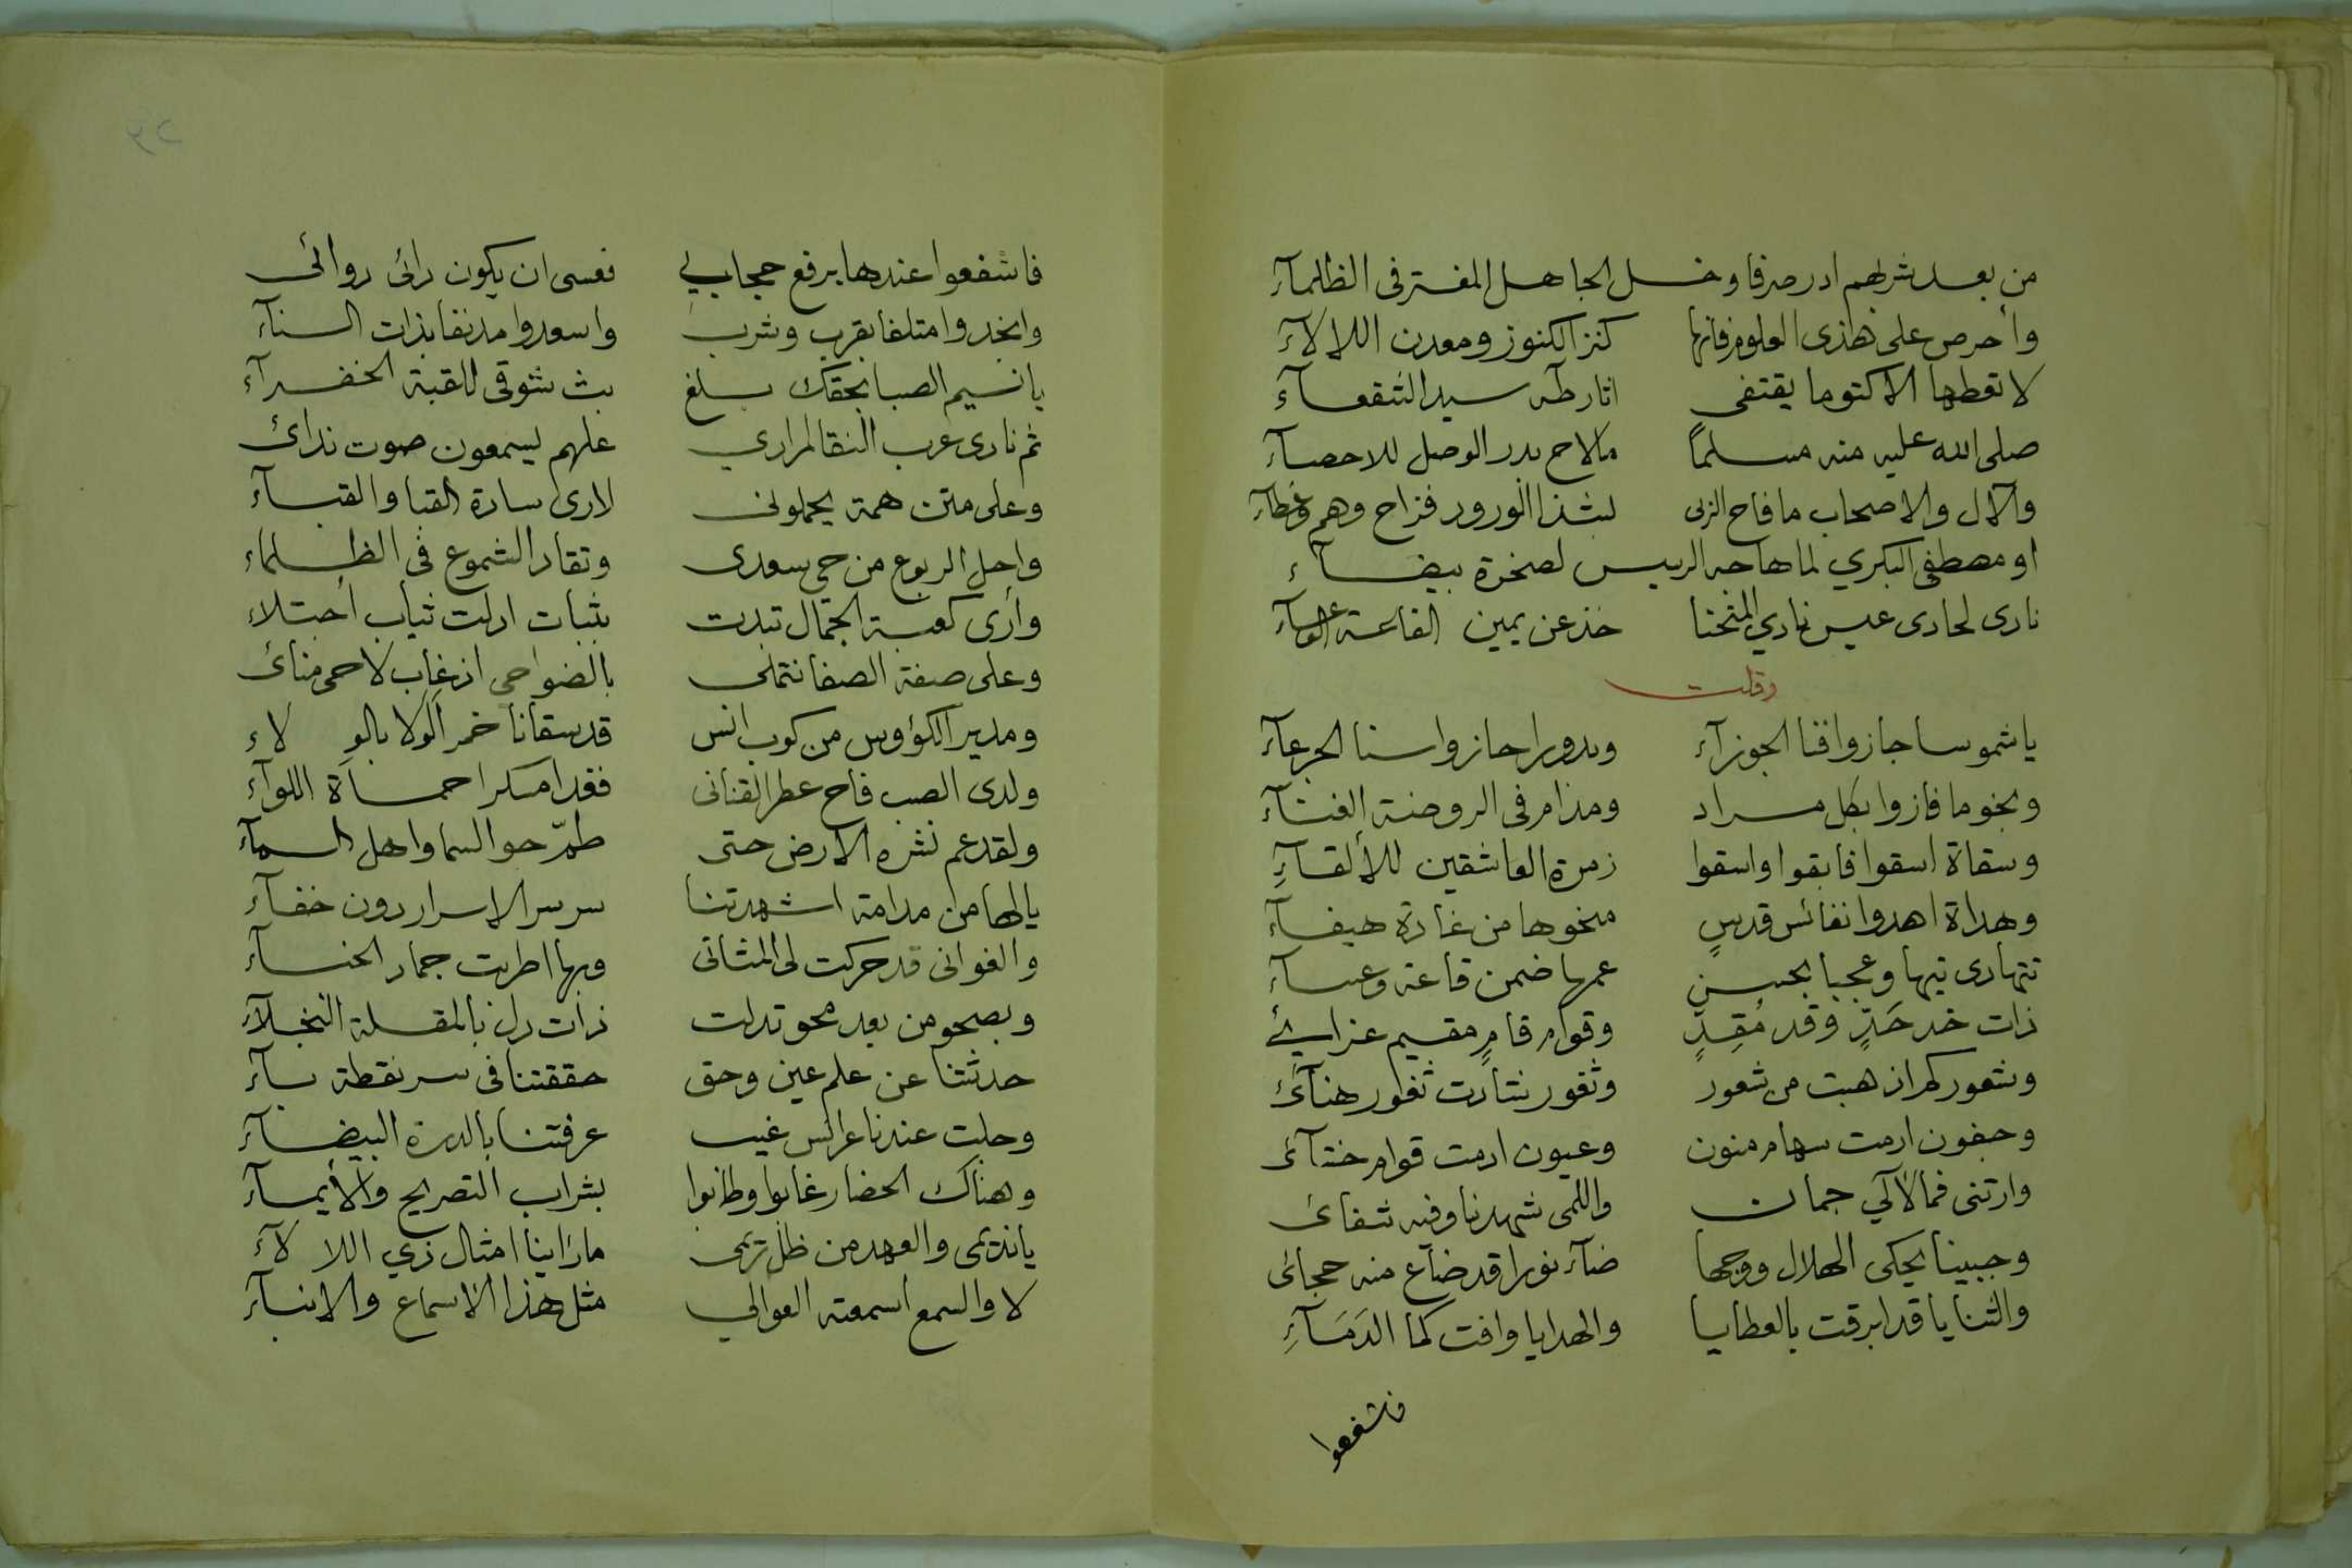 من بعد شربهم ادر صرفا وخل الجاهل المفتر فى الظلمآء
وأحرص على هذى العلوم فانها كنز الكنوز ومعدن اللالآء
لا تعطها الا كتوما يقتفى اثار طه سيد الشفعآء
صلى الله عليه منه مسلماً مالاح بدر الوصل للاحصآء
والال والاصحاب ما فاح الربى بشذا الورود فزاح وهم غطآء
او مصطفى البكري لما هاجه الرييس لصخرة بيضآء
نادى لحادى عيس نادي المنحنا خذ عن يمين القاعة الوعسآء
وقلت
يا شموسا جازوا قنا الجوزآء وبدورا حازوا سنا الجرعآء
ونجوما فازوا بكل مراد ومذام فى الروضة الغنآء
وسقاة اسقوا فابقوا واسقوا زمرة العاشقين للألقآءِ
وهداة اهدوا نفائس قدسٍ منحوها من غادة هيفآء
تتهادى تيها وعجبا بحسن عمها ضمن قاعة وعسآء
ذات خد خَدٍّ وقد مُقِدٍّ وقوام قامٍ مقيم عزائي
وشعور كم اذهبت من شعور وثغور نشأت ثغور هنآئ
وجفون ارمت سهام منون وعيون ادمت قوام خنآئ
وارتنى فما لالآلي جمان واللمى شهدنا وفيه شفائ
وجبينا يحكى الهلال ووجها ضآء نورا قد ضاع منه حجائ
والثنايا قد ابرقت بالعطايا والهدايا وافت كما الدَمَآءِ
فاشفعوا
فاشفعوا عندها برفع حجابي فعسى ان يكون رائ روائى
وانجدوا متلفا بقرب وشرب واسعدوا مدنفا بذات السنآء
يا نسيم الصبا بحقك بلغ بث شوقى للقبة الخضرآء
ثم نادى عرب النقا لمرادي علهم ليسمعون صوت ندائ
وعلى متن همة يحملونى لارى سادة القبا والقبآء
واحل الربوع من حي سعدى وتقاد الشموع فى الظلماء
وأرى كعبة الجمال تبدت بثبات ادلت ثياب أجتلاء
وعلى صفة الصفا نتملى بالضواحى اذ غاب لاحى منائ
ومدير الكؤوس من كوب انس قد سقانا خمر الولا بالولاء
ولدى الصب فاح عطر القنانى فغدا مسكرا حماة اللوآء
ولقد عم نشره الارض حتى طمّ جو السما واهل السمآء
يا لها من مدامة اشهدتنا سر سر الاسرار دون خفآء
والغوانى قد حركت لى المثانى وبها اطربت جماد الخسآء
وبصحو من بعد محو تدلت ذات دل بالمقلة النجلآء
حدثتنا عن علم عين وحق حققتنا فى سر نقطة بآء
وجلت عندنا عرائس غيب عرفتنا بالدرة البيضآء
وهناك الحضار غابوا وطابوا بشراب التصريح والأيمآء
يا نديمى والعهد من ظل ترمى ما رأينا امثال ذي اللالآء
لا والسمع أسمعته العوالي مثل هذا الاسماع والانبآء